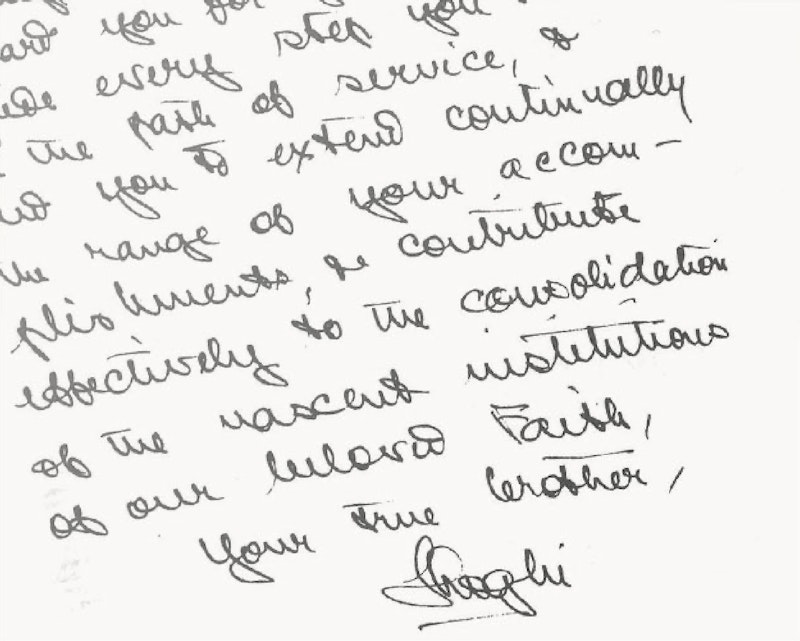 you for
every step you
the path of service, &
you to extend continually
the range of your accom-
plishments, & contribute
effectively to the consolidation
of the nascent institutions
of our beloved Faith,
Your true brother,
Shoghi